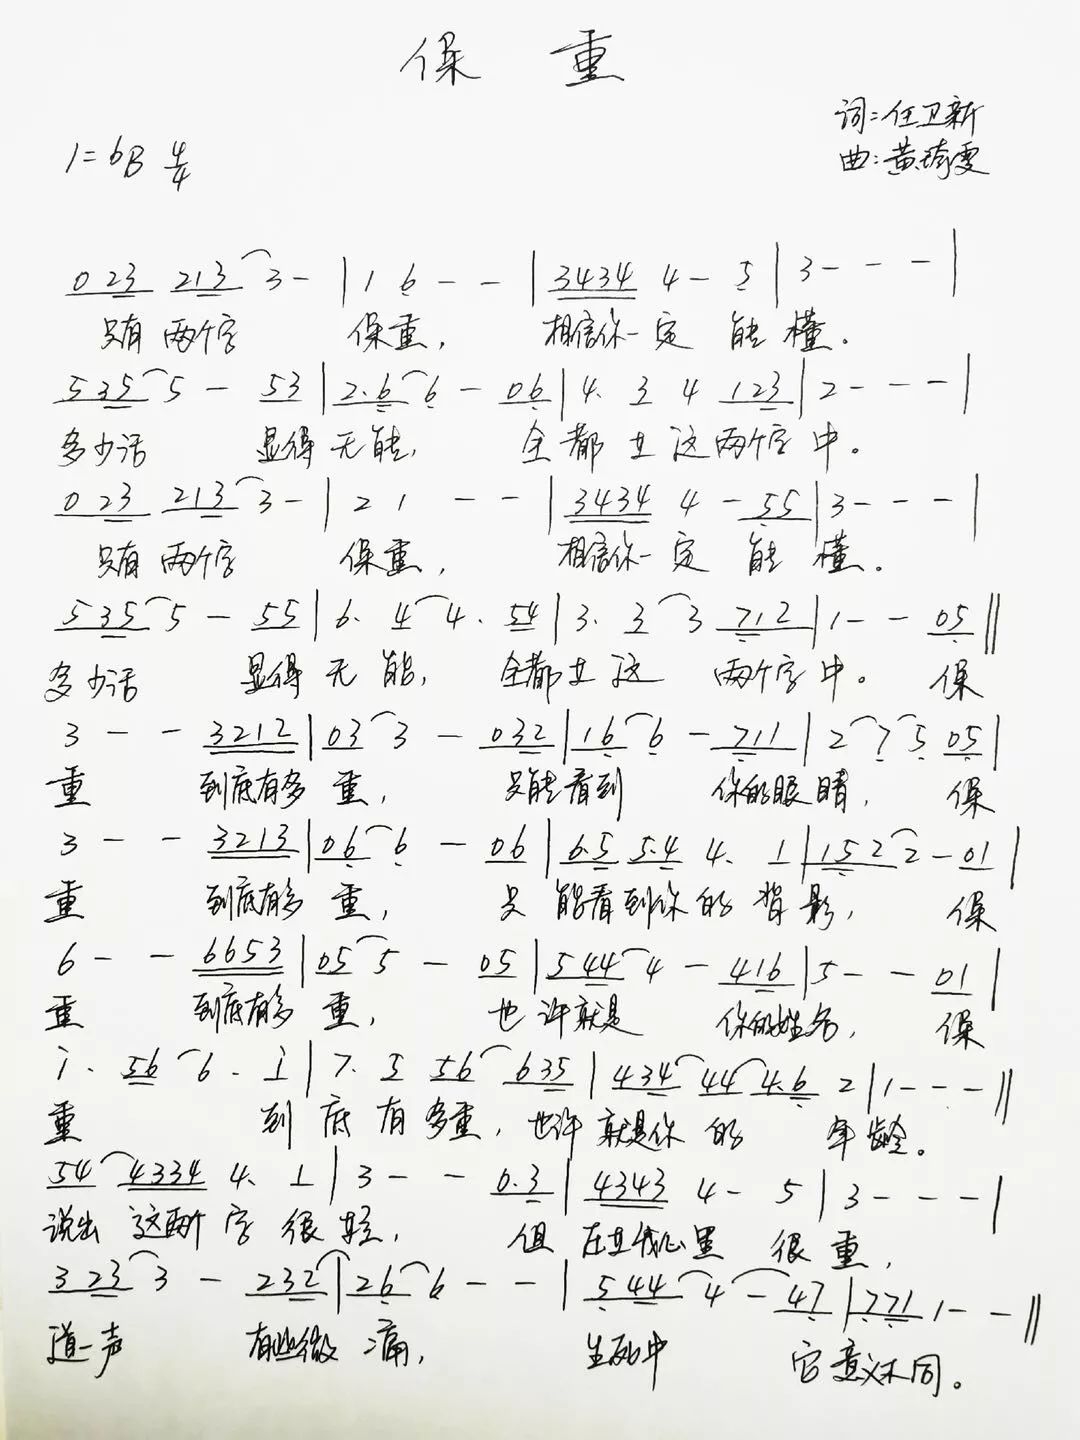 保 重
词:任卫新
曲:黄绮雯
1=bB 4/4
0 23 213 3- | 1 6 - - | 3434 4- 5 | 3- - - |
只有 两个字 保重, 相信你一定 能 懂.
535 5 - 53 | 2.6 6 - 06 | 4. 3 4 123 | 2- - - |
多少话 显得无能, 全都在这两个字中.
0 23 213 3- | 2 1 - - | 3434 4 - 55 | 3- - - |
只有 两个字 保重, 相信你一定 能 懂.
535 5 - 55 | 6. 4 4. 54 | 3. 3 3 712 | 1- - 05 ||
多少话 显得 无 能, 全都在这 两个字中. 保
3 - - 3212 | 03 3 - 032 | 16 6 - 711 | 2 7 5 05 |
重 到底有多 重, 只能看到 你的眼睛, 保
3 - - 3213 | 06 6 - 06 | 6.5 5.4 4. 1 | 152 2- 01 |
重 到底有多 重, 只 能看到你 的 背 影, 保
6 - - 6653 | 05 5 - 05 | 544 4 - 416 | 5- - 01 |
重 到底有多 重, 也 许就是 你的姓名, 保
i. 56 6. i | 7. 5 56 635 | 434 44 4.6 2 | 1- - - ||
重 到 底 有 多重, 也许 就是你 的 年龄.
54 4334 4. 1 | 3- - 0.3 | 4343 4- 5 | 3- - - |
说出 这两个 字 很 轻, 但 在在我心里 很 重,
323 3 - 232 | 26 6 - - | 544 4 - 47 | 771 1- - ||
道一声 有些微 痛, 生死中 它意义不同.